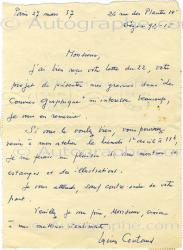 Paris 27 mars 57 26 rue des Plantes 14e
Monsieur,
J'ai bien reçu votre lettre du 22, votre
projet de présenter mes gravures dans "le
Courrier Graphique" m'intéresse beaucoup,
je vous en remercie.
Si vous le voulez bien, vous pouvez
venir à mon atelier de lundi 1er avril à 11h,
je me ferai un plaisir de vous montrer des
estampes et des illustrations.
Je vous attends, sauf contre ordre de votre
part.
Veuillez je vous prie, Monsieur, croire
à mes meilleurs sentiments.